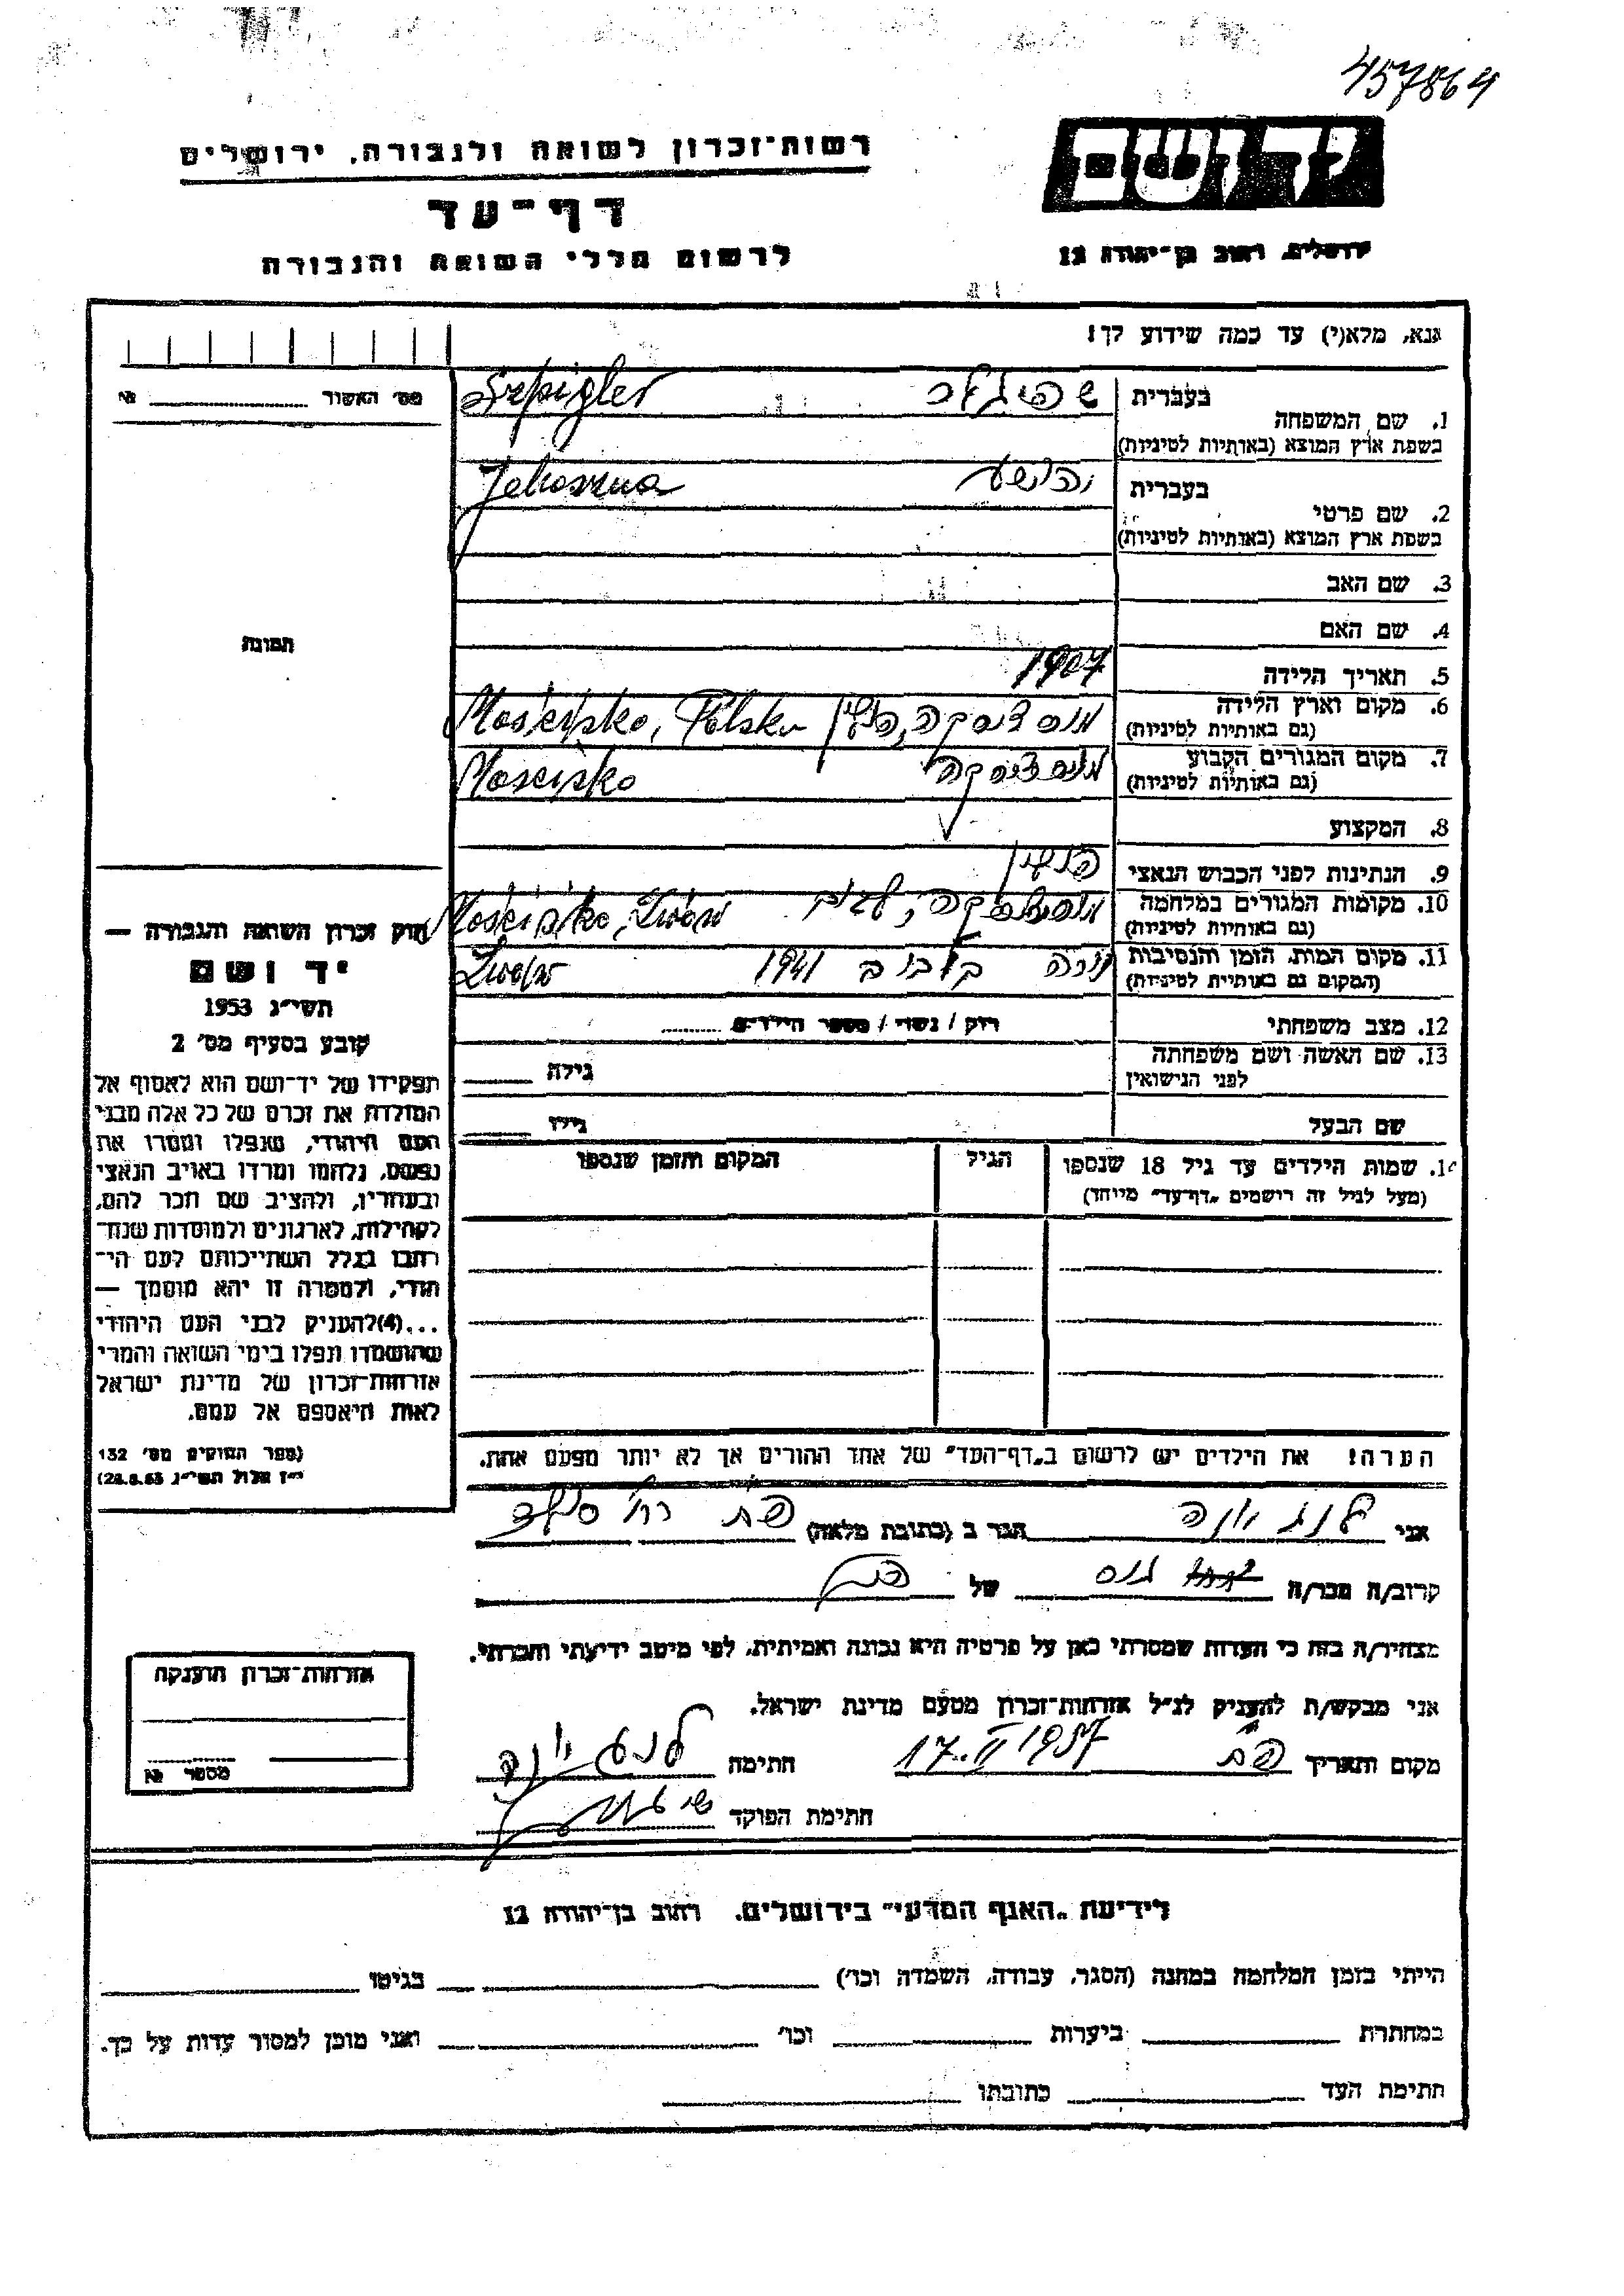 457864
יד ושם
ירושלים, רחוב בן־יהודה 12
רשות־זכרון לשואה ולגבורה, ירושלים
דף־עד
לרשום חללי השואה והגבורה
נא, מלא(י) עד כמה שידוע לך!
מס׳ האשור № 
1. שם המשפחה
בעברית
שפיגלר Szpigler
בשפת ארץ המוצא (באותיות לטיניות)
2. שם פרטי
בעברית
יהושע Jehoszua
בשפת ארץ המוצא (באותיות לטיניות)
3. שם האב
4. שם האם
תמונה
5. תאריך הלידה 1907
6. מקום וארץ הלידה
(גם באותיות לטיניות)
מוסציסקה, פולין Mościsko, Polska
7. מקום המגורים הקבוע
(גם באותיות לטיניות)
מוסציסקה Mościsko
8. המקצוע
9. הנתינות לפני הכבוש הנאצי פולין
10. מקומות המגורים במלחמה
(גם באותיות לטיניות)
לבוב Mościsko, Lwów
11. מקום המות, הזמן והנסיבות
(המקום גם באותיות לטיניות)
בלבוב 1941 Lwów
12. מצב משפחתי רוק / נשוי / מספר הילדים
13. שם האשה ושם משפחתה
לפני הנישואין
גילה
שם הבעל גילו
שמות הילדים עד גיל 18 שנספו הגיל המקום והזמן שנספו
(מעל לגיל זה רושמים „דף־עד" מיוחד)
הערה! את הילדים יש לרשום ב„דף־העד" של אחד ההורים אך לא יותר מפעם אחת.
חוק זכרון השואה והגבורה —
יד ושם
תשי״ג 1953
קובע בסעיף מס׳ 2
תפקידו של יד־ושם הוא לאסוף אל
המולדת את זכרם של כל אלה מבני
העם היהודי, שנפלו ומסרו את
נפשם, נלחמו ומרדו באויב הנאצי
ובעוזריו, ולהציב שם וזכר להם,
לקהילות, לארגונים ולמוסדות שנח־
רבו בגלל השתייכותם לעם היה־
הודי, ולמטרה זו יהא מוסמך —
...(4)להעניק לבני העם היהודי
שהושמדו ונפלו בימי השואה והמרי
אזרחות־זכרון של מדינת ישראל
לאות היאספם אל עמם.
(ספר החוקים מס׳ 132
י״ז אלול תשי״ג 28.8.53)
אני לנג יונה הגר ב (כתובת מלאה) פת רח׳
קרוב/ה מכר/ה של
מצהיר/ה בזה כי העדות שמסרתי כאן על פרטיה היא נכונה ואמיתית, לפי מיטב ידיעתי והכרתי.
אני מבקש/ת להעניק לנ״ל אזרחות־זכרון מטעם מדינת ישראל.
מקום ותאריך פת 17.II 1957 חתימה לנג יונה
חתימת הפוקד
אזרחות־זכרון הוענקה
מספר №
לידיעת „האגף המדעי" בירושלים. רחוב בן־יהודה 12
הייתי בזמן המלחמה במחנה (הסגר, עבודה, השמדה וכו׳) בגיטו
במחתרת ביערות וכו׳ ואני מוכן למסור עדות על כך.
חתימת העד כתובתו